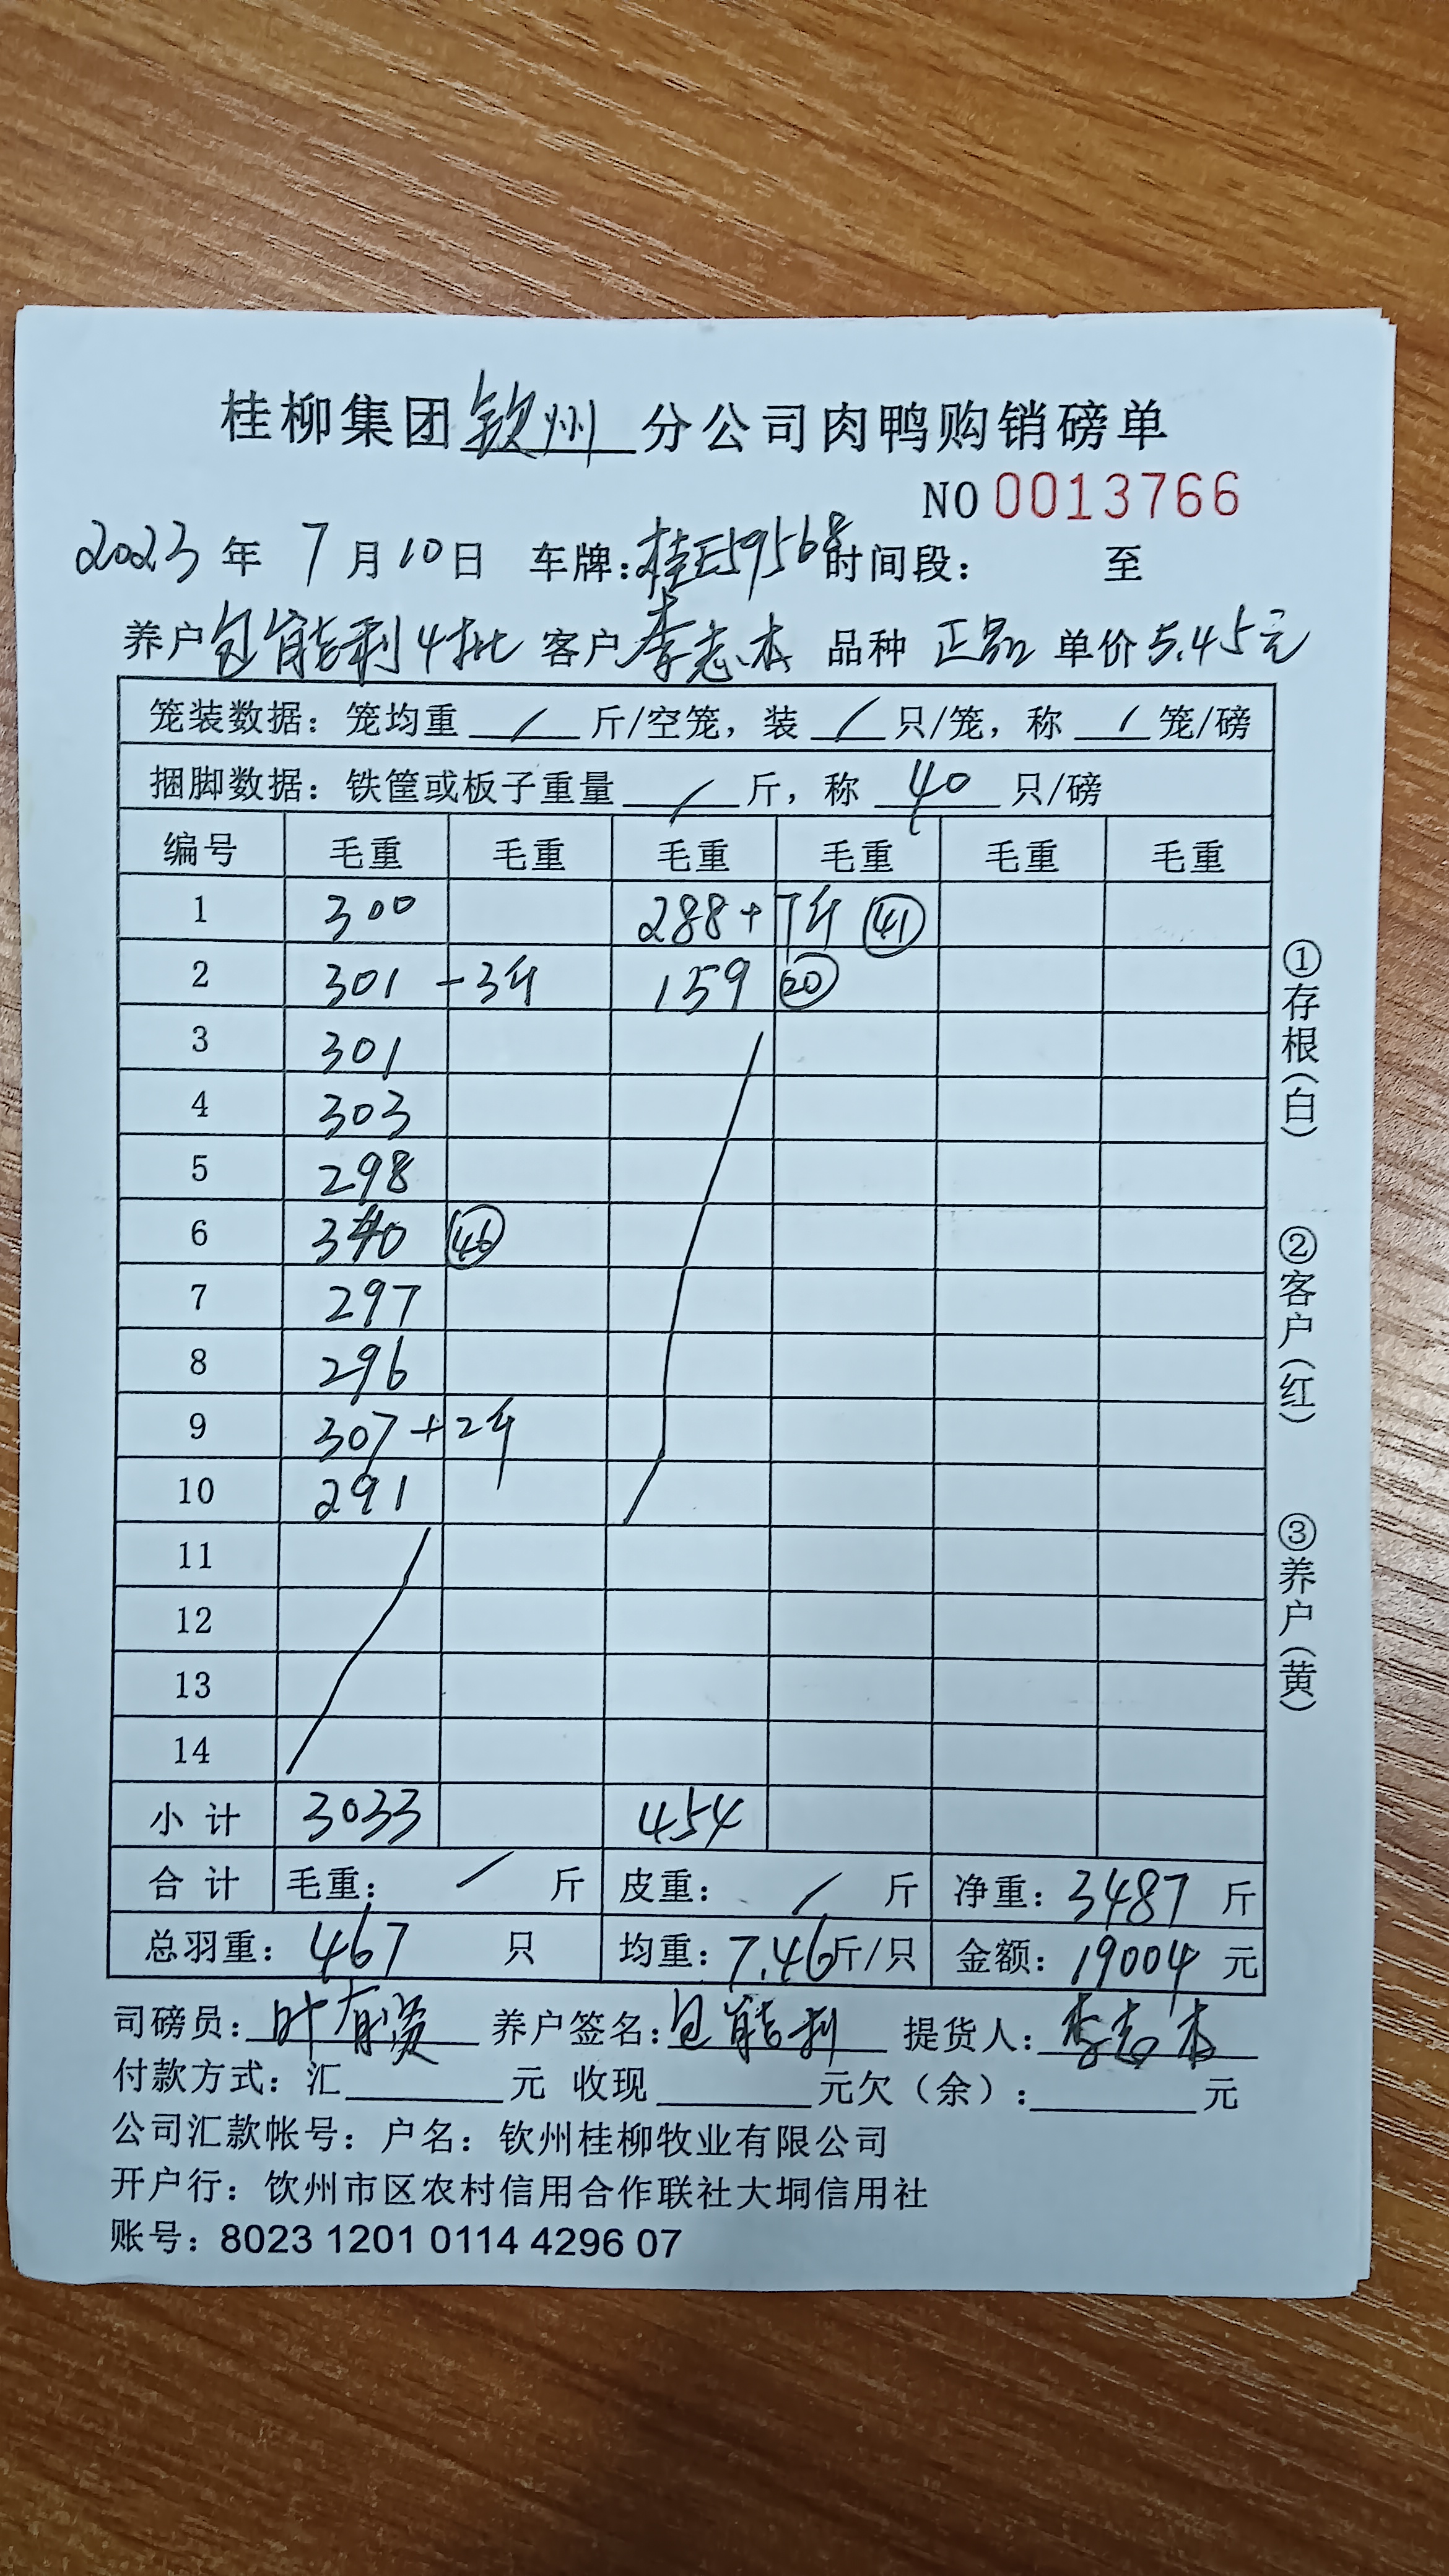 桂柳集团钦州分公司肉鸭购销磅单
NO 0013766
2023年 7月10日 车牌:桂E59568 时间段: 至
养户 包能利4批 客户 李志本 品种 正品 单价5.45元
笼装数据: 笼均重 / 斤/空笼, 装 / 只/笼, 称 / 笼/磅
捆脚数据: 铁筐或板子重量 / 斤, 称 40 只/磅
编号 毛重 毛重 毛重 毛重 毛重 毛重
1 300 288+7斤 ㊶
2 301 -3斤 159 ⑳
3 301
4 303
5 298
6 340 ㊻
7 297
8 296
9 307+2斤
10 291
11
12
13
14
小计 3033 454
合计 毛重: / 斤 皮重: / 斤 净重: 3487 斤
总羽重: 467 只 均重: 7.46斤/只 金额: 19004 元
司磅员: 叶有 养户签名: 包能利 提货人: 李志本
付款方式: 汇 元 收现 元欠(余): 元
公司汇款帐号: 户名: 钦州桂柳牧业有限公司
开户行: 饮州市区农村信用合作联社大垌信用社
账号: 8023 1201 0114 4296 07
①存根(白)
②客户(红)
③养户(黄)